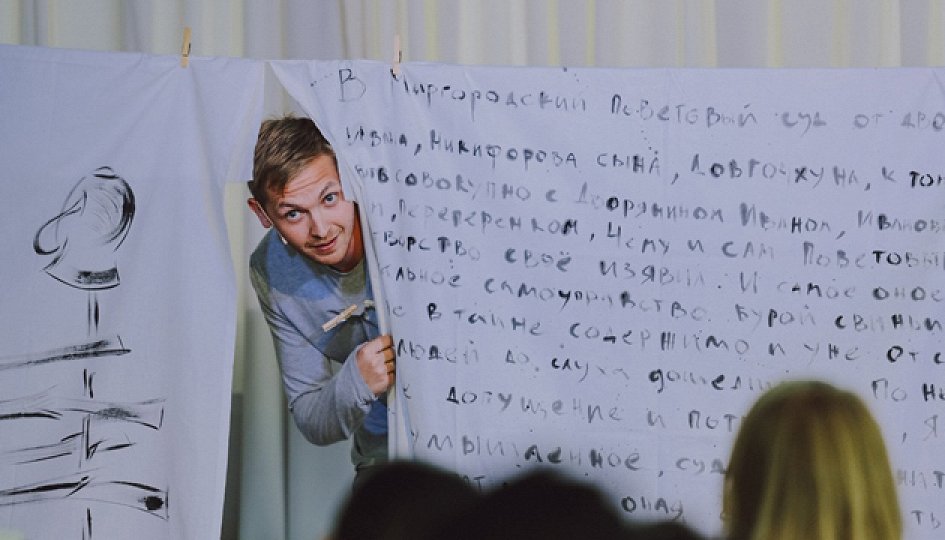 В Миргородский Поветовый суд от дво
Ивана, Никифорова сына, Довгочхуна, к том
совокупно с Дворянином Иваном, Иванов
Перереренком, Чему и сам Поветовый
своё изявил. И самое оное
самоуправство бурой свиньи
в тайне содержимо и уже от с
людей до слуха дошедши По
допущение и пот я
умышленное, суд
оная